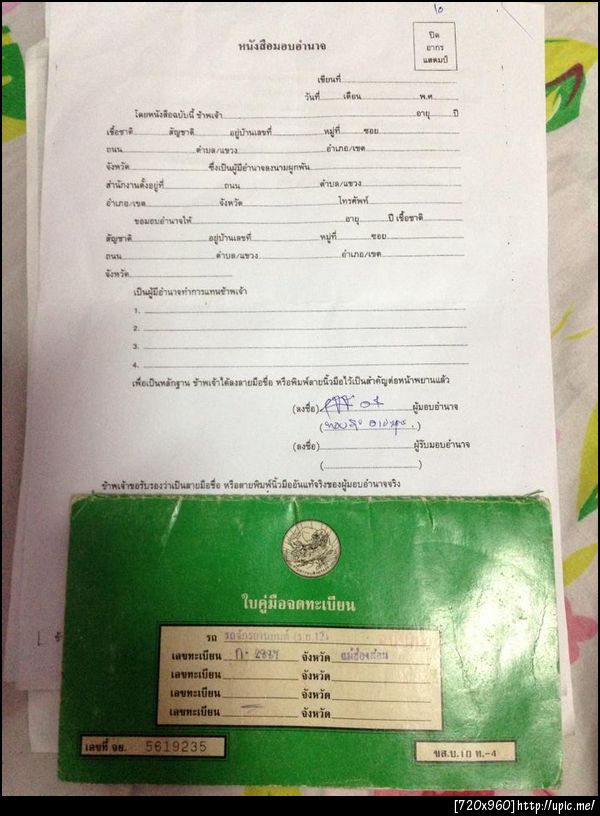 ๖
ปิด
อากร
แสตมป์
หนังสือมอบอำนาจ
เขียนที่
วันที่ เดือน พ.ศ.
โดยหนังสือฉบับนี้ ข้าพเจ้า อายุ ปี
เชื้อชาติ สัญชาติ อยู่บ้านเลขที่ หมู่ที่ ซอย
ถนน ตำบล/แขวง อำเภอ/เขต
จังหวัด ซึ่งเป็นผู้มีอำนาจลงนามผูกพัน
สำนักงานตั้งอยู่ที่ ถนน ตำบล/แขวง
อำเภอ/เขต จังหวัด โทรศัพท์
ขอมอบอำนาจให้ อายุ ปี เชื้อชาติ
สัญชาติ อยู่บ้านเลขที่ หมู่ที่ ซอย
ถนน ตำบล/แขวง อำเภอ/เขต
จังหวัด
เป็นผู้มีอำนาจทำการแทนข้าพเจ้า
1.
2.
3.
4.
เพื่อเป็นหลักฐาน ข้าพเจ้าได้ลงลายมือชื่อ หรือพิมพ์ลายนิ้วมือไว้เป็นสำคัญต่อหน้าพยานแล้ว
(ลงชื่อ) ผู้มอบอำนาจ
(ลงชื่อ) ผู้รับมอบอำนาจ
ข้าพเจ้าขอรับรองว่าเป็นลายมือชื่อ หรือลายพิมพ์นิ้วมืออันแท้จริงของผู้มอบอำนาจจริง
ใบคู่มือจดทะเบียน
รถ รถจักรยานยนต์ (ร.ย.12)
เลขทะเบียน จังหวัด แม่ฮ่องสอน
เลขทะเบียน จังหวัด
เลขทะเบียน จังหวัด
เลขทะเบียน จังหวัด
เลขที่ จย. 5619235
ขส.บ.10 ท.-4
[720x960]http://upic.me/